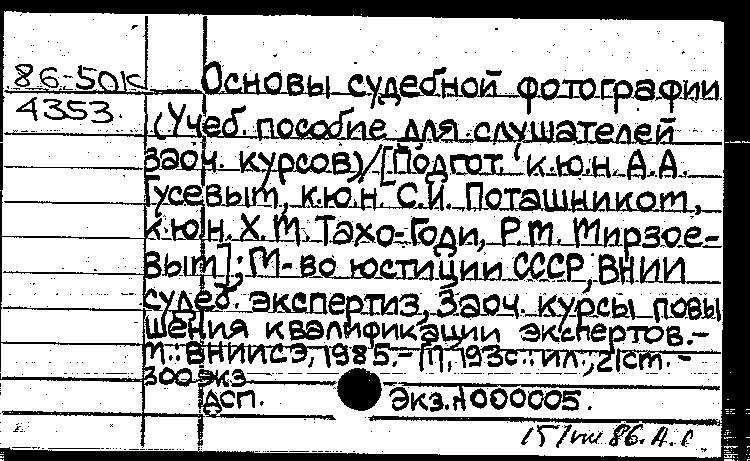 86-50к Основы судебной фотографии
4353. (Учеб. пособие для слушателей
заоч. курсов)/[Подгот. к.ю.н. А.А.
Гусевым, к.ю.н. С.И. Поташником,
к.ю.н. Х.М. Тахо-Годи, Р.М. Мирзое-
вым]; М-во юстиции СССР, ВНИИ
судеб. экспертиз, Заоч. курсы повы
шения квалификации экспертов.-
М.: ВНИИСЭ, 1985.- 193с.: ил.; 21см.-
300 экз
ДСП. Экз.N000005.
15/VIII 86. А.С.